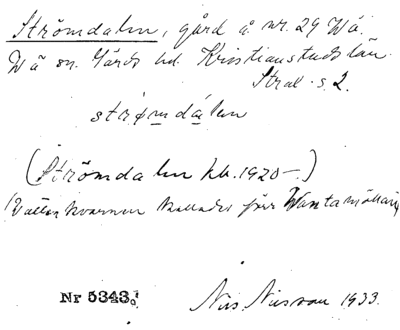 Strömdalen, gård å nr. 29 Wä.
Wä sn. Gärds hd. Kristianstads län
Skat. s. 2.
strömdálen
(Strömdalen kb. 1920–)
(Vattenkvarnen kallades förr Wantamöllan)
Nr 5343.
Nils Nilsson 1933.